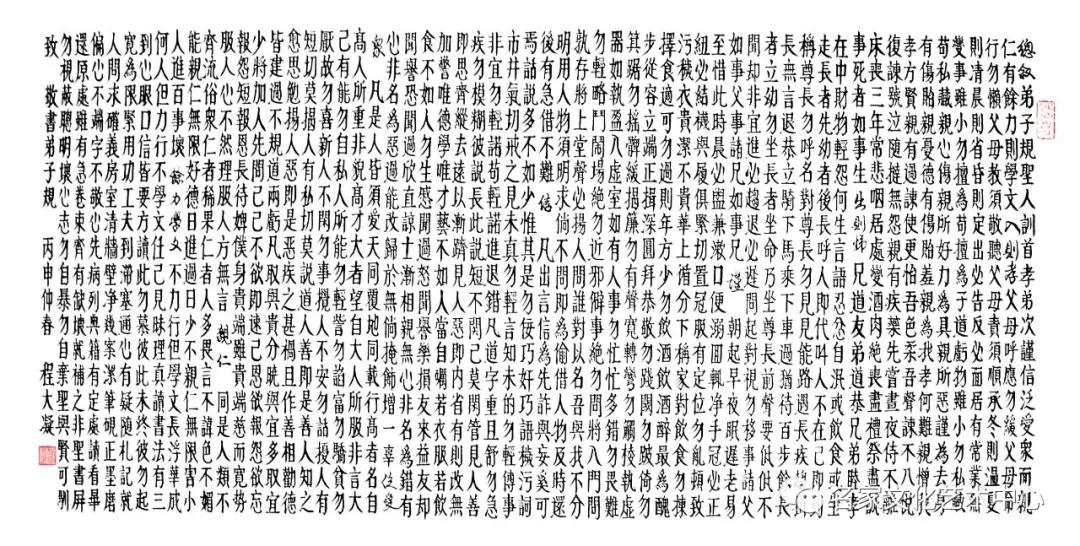 總敘弟子規聖人訓首孝弟次謹信泛愛衆而親
仁有餘力則學文 入則孝 父母呼應勿緩父母命
行勿懶父母教須敬聽父母責須順承冬則溫夏
則凊晨則省昏則定出必告反必面居有常業無
變事雖小勿擅為苟擅為子道虧物雖小勿私藏
苟私藏親心傷親所好力為具親所惡謹為去身
有傷貽親憂德有傷貽親羞親愛我孝何難親憎我
孝方賢親有過諫使更怡吾色柔吾聲諫不入悅
復諫號泣隨撻無怨親有疾藥先嘗晝夜侍不離
床喪三年常悲咽居處變酒肉絕喪盡禮祭盡誠
事死者如事生 出則悌 兄道友弟道恭兄弟睦孝
在中財物輕怨何生言語忍忿自泯或飲食或坐
走長者先幼者後長呼人即代叫人不在己即到
稱尊長勿呼名對尊長勿見能路遇長疾趨揖
長無言退恭立騎下馬乘下車過猶待百步餘長
者立幼勿坐長者坐命乃坐尊長前聲要低低不
聞卻非宜進必趨退必遲問起對視勿移事諸父
如事父事諸兄如事兄 謹 朝起早夜眠遲老易
至惜此時晨必盥兼漱口便溺回輒淨手冠必正
紐必結襪與履俱緊切置冠服有定位勿亂頓致
污穢衣貴潔不貴華上循分下稱家對飲食勿揀
擇食適可勿過則年方少勿飲酒飲酒醉最為醜
步從容立端正揖深圓拜恭敬勿踐閾勿跛倚勿
箕踞勿搖髀緩揭簾勿有聲寬轉彎勿觸棱執虛
器如執盈入虛室如有人事勿忙忙多錯勿畏難
勿輕略鬥鬧場絕勿近邪僻事絕勿問將入門問
孰存將上堂聲必揚人問誰對以名吾與我不分
明用人物須明求倘不問即為偷借人物及時還
後有急借不難 信 凡出言信為先詐與妄奚可
焉話說多不如少惟其是勿佞巧奸巧語穢污詞
市井氣切戒之見未真勿輕言知未的勿輕傳事
非宜勿輕諾苟輕諾進退錯凡道字重且舒勿急
疾勿模糊彼說長此說短不關己莫閒管見人善
即思齊縱去遠以漸躋見人惡即內省有則改無
加警唯德學唯才藝不如人當自礪若衣服若飲
食不如人勿生慼聞過怒聞譽樂損友來益友卻
聞譽恐聞過欣直諒士漸相親無心非名為錯有
心非名為惡過能改歸於無倘掩飾增一辜 泛愛
衆 凡是人皆須愛天同覆地同載行高者名自
高人所重非貌高才大者望自大人所服非言大
己有能勿自私人所能勿輕訾勿諂富勿驕貧勿
厭故勿喜新人不閒勿事攪人不安勿話擾人有
短切莫揭人有私切莫說道人善即是善人知之
愈思勉揚人惡即是惡疾之甚禍且作善相勸德
皆建過不規道兩虧凡取與貴分曉與宜多取宜
少將加人先問己己不欲即速已恩欲報怨欲忘
報怨短報恩長待婢僕身貴端雖貴端慈而寬勢
服人心不然理服人方無言 親仁 同是人類不
齊流俗衆仁者稀果仁者人多畏言不諱色不媚
能親仁無限好德日進過日少不親仁無限害小
人進百事壞 餘力學文 不力行但學文長浮華成
何人但力行不學文任己見昧理真讀書法有三
到心眼口信皆要方讀此勿慕彼此未終彼勿起
寬為限緊用功工夫到滯塞通心有疑隨札記就
人問求確義房室清牆壁淨几案潔筆硯正墨磨
偏心不端字不敬心先病列典籍有定處讀看畢
還原處雖有急卷束齊有缺壞就補之非聖書屏
勿視蔽聰明壞心志勿自暴勿自棄聖與賢可馴
致 敬書弟子規 丙申仲春 程大凝
名家文化艺术中心